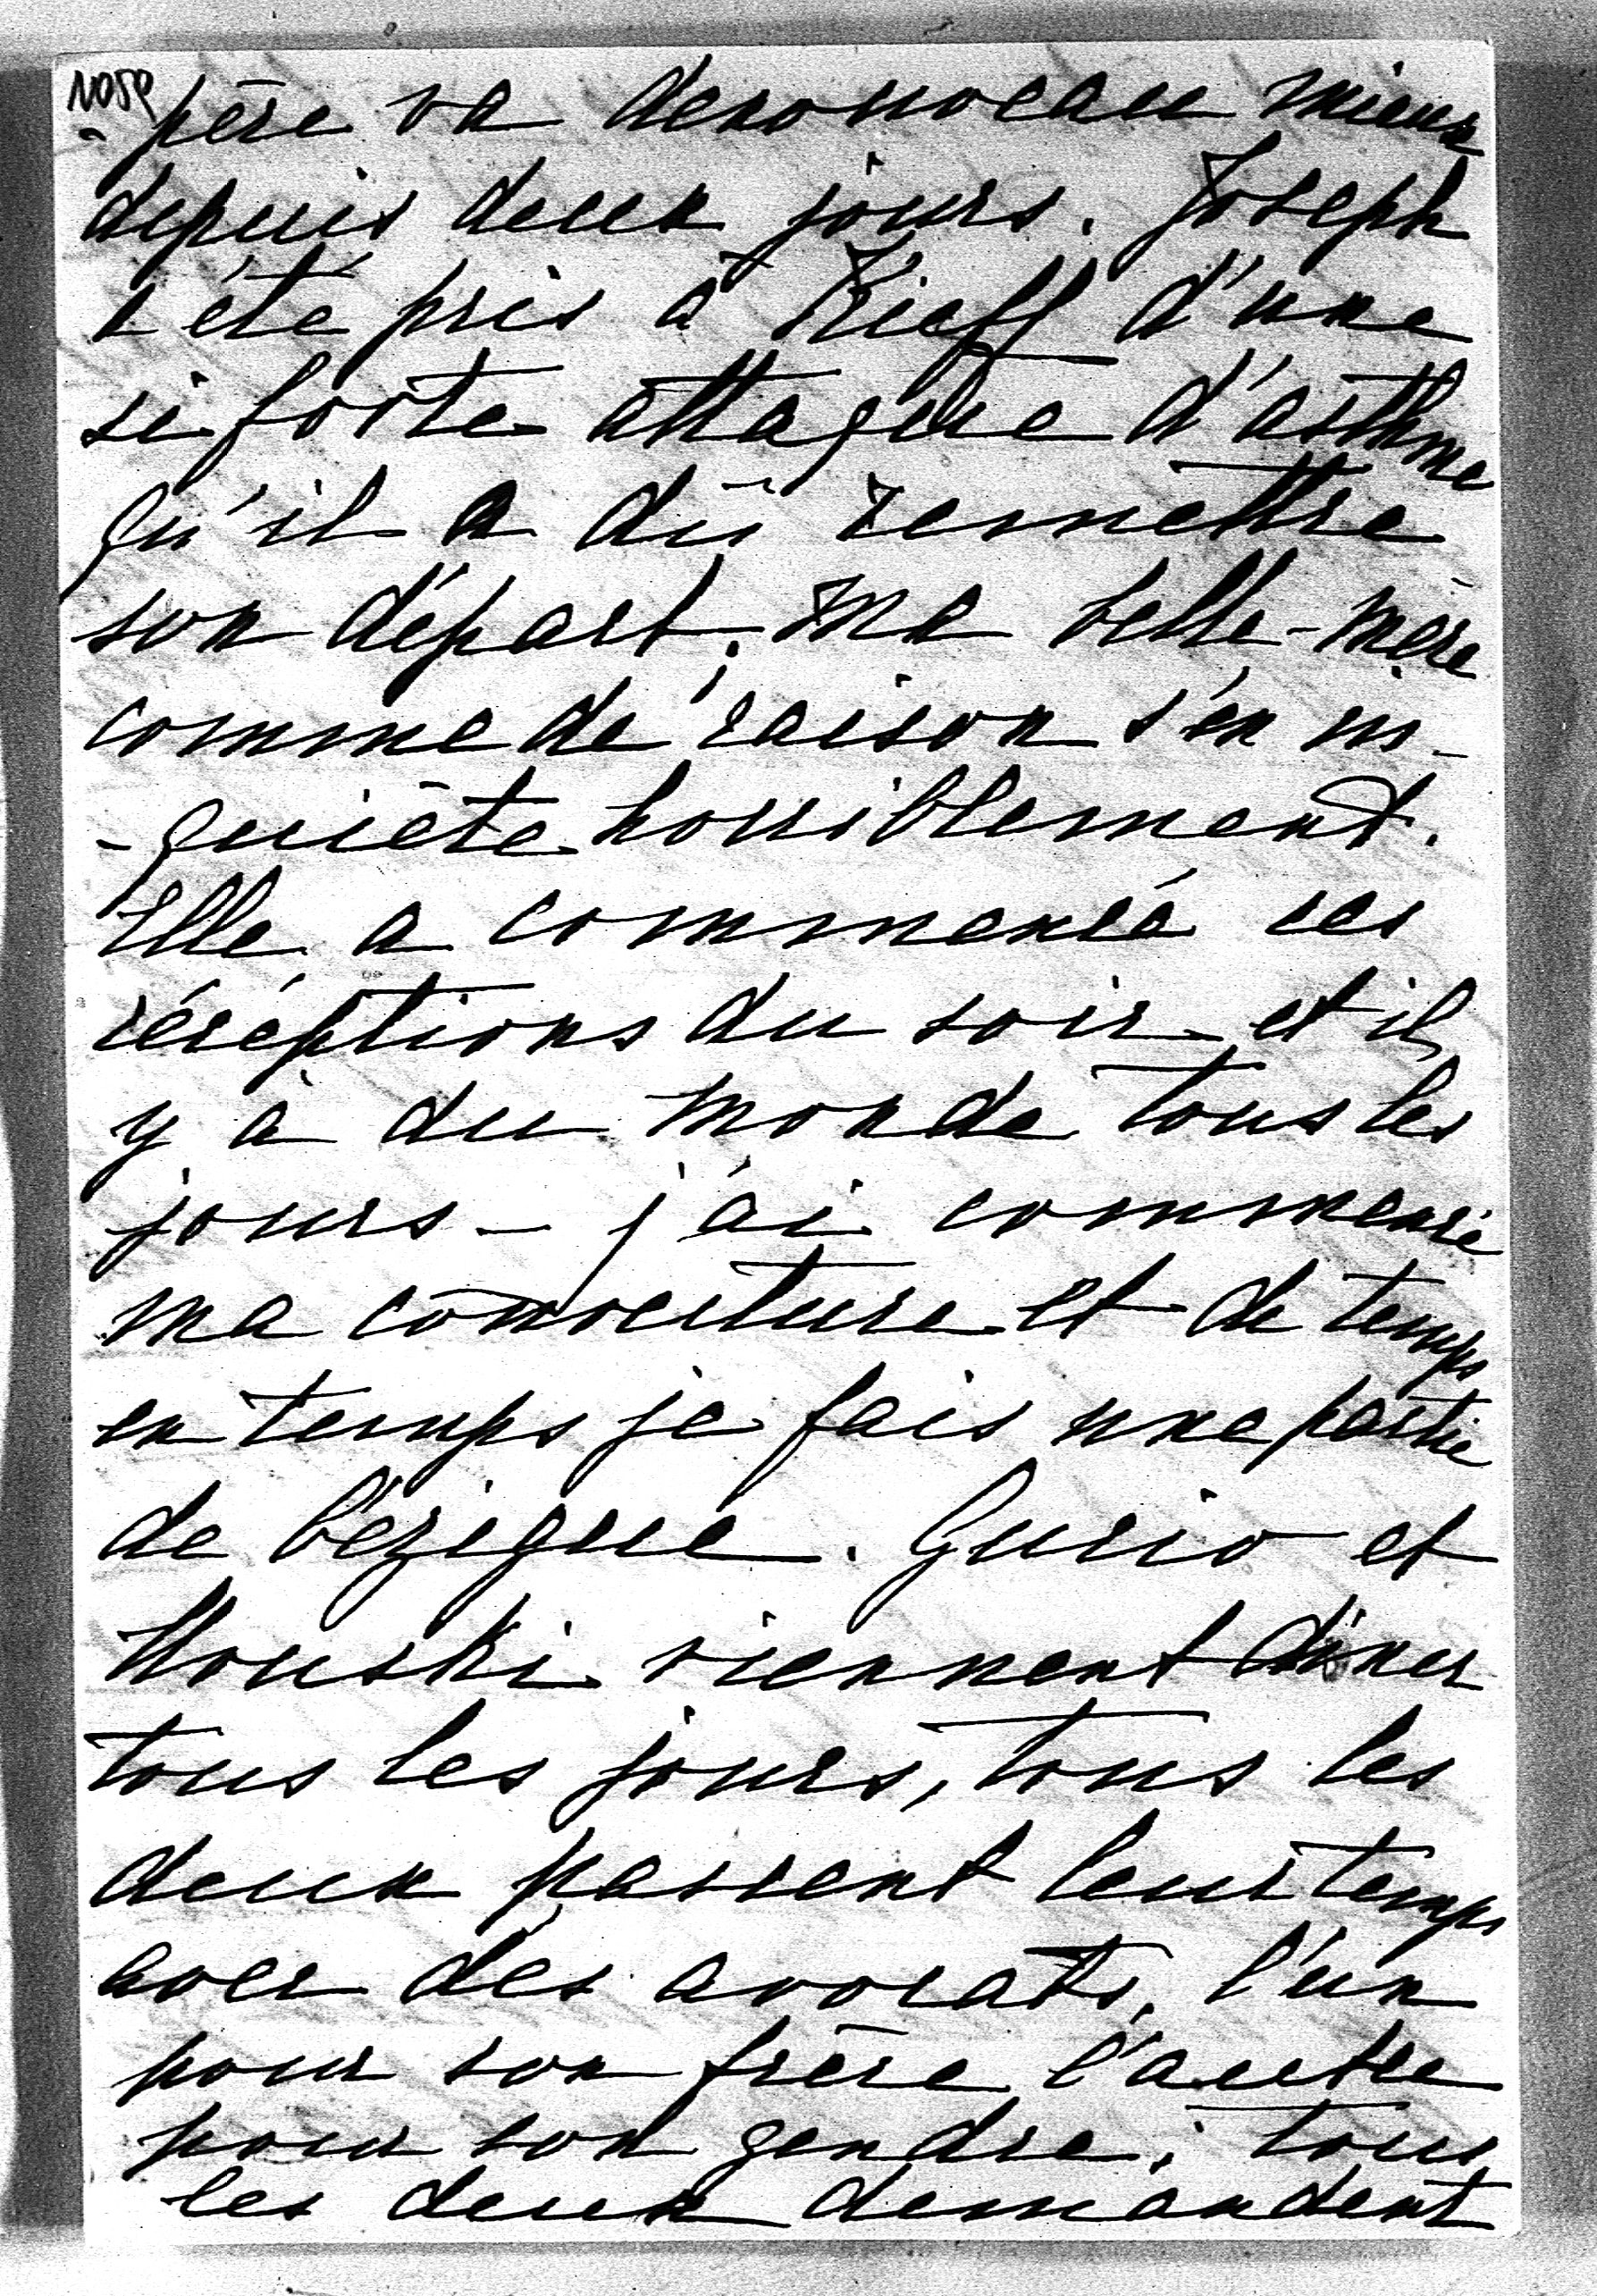 1059
-père va denouveau mieux
depuis deux jours. Joseph
a été pris à Kieff d'une
si forte attaque d'asthme
qu'il a dû remettre
son départ; ma belle-mère
comme de raison s'en in-
-quiète horriblement.
Elle a commencé ces
réceptions du soir et il
y a du monde tous les
jours - j'ai commencé
ma couverture et de temps
en temps je fais une partie
de bézigue. Gurio et
viennent diner
tous les jours, tous les
deux passent leur temps
avec des avocats, l'un
pour son frère l'autre
pour son gendre; tous
les deux demandent